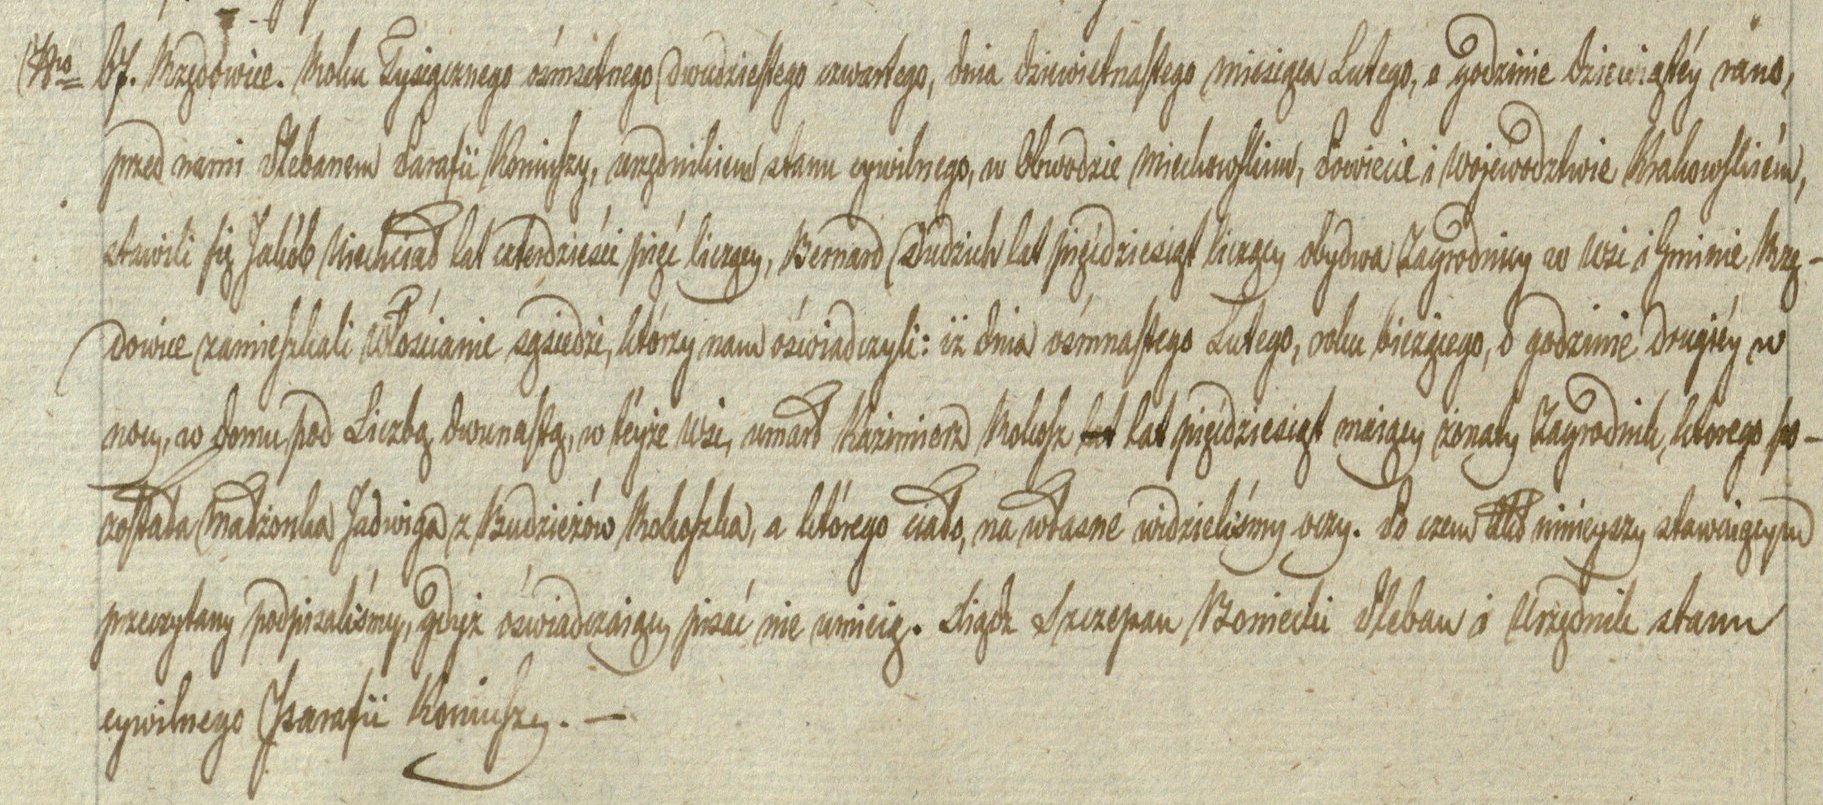 Nro 67. Rzędowice. Roku Tysiącznego ośmsetnego dwudziestego czwartego, dnia dziewiętnastego miesiąca Lutego, o godzinie dziewiątéy rano,
przed nami Plebanem Parafii Koniuszy, urzędnikiem stanu cywilnego, w Obwodzie Miechowskim, Powiecie i Województwie Krakowskiém,
stawili się Jakób Miechciał lat czterdzieści pięć liczący, Bernard Dudzich lat pięćdziesiąt liczący obydwa Zagrodnicy w Wsi i Gminie Rzę-
dowice zamieszkali Włościanie sąsiedzi, którzy nam oświadczyli: iż dnia ośmnastego Lutego, roku bieżącego, o godzinie drugiéy w
nocy, w domu pod Liczbą dwunastą, w téyże Wsi, umarł Kazimierz Rokosz lat pięćdziesiąt maiący żonaty Zagrodnik, którego po-
została Małżonka Jadwiga z Budzieżów Rokoszka, a którego ciało, na własne widzieliśmy oczy. Po czem Akt ninieyszy stawaiącym
przeczytany podpisaliśmy, gdyż oświadczaiący pisać nie umieią. Xiądz Szczepan Boniecki Pleban i Urzędnik stanu
cywilnego Parafii Koniuszy. —